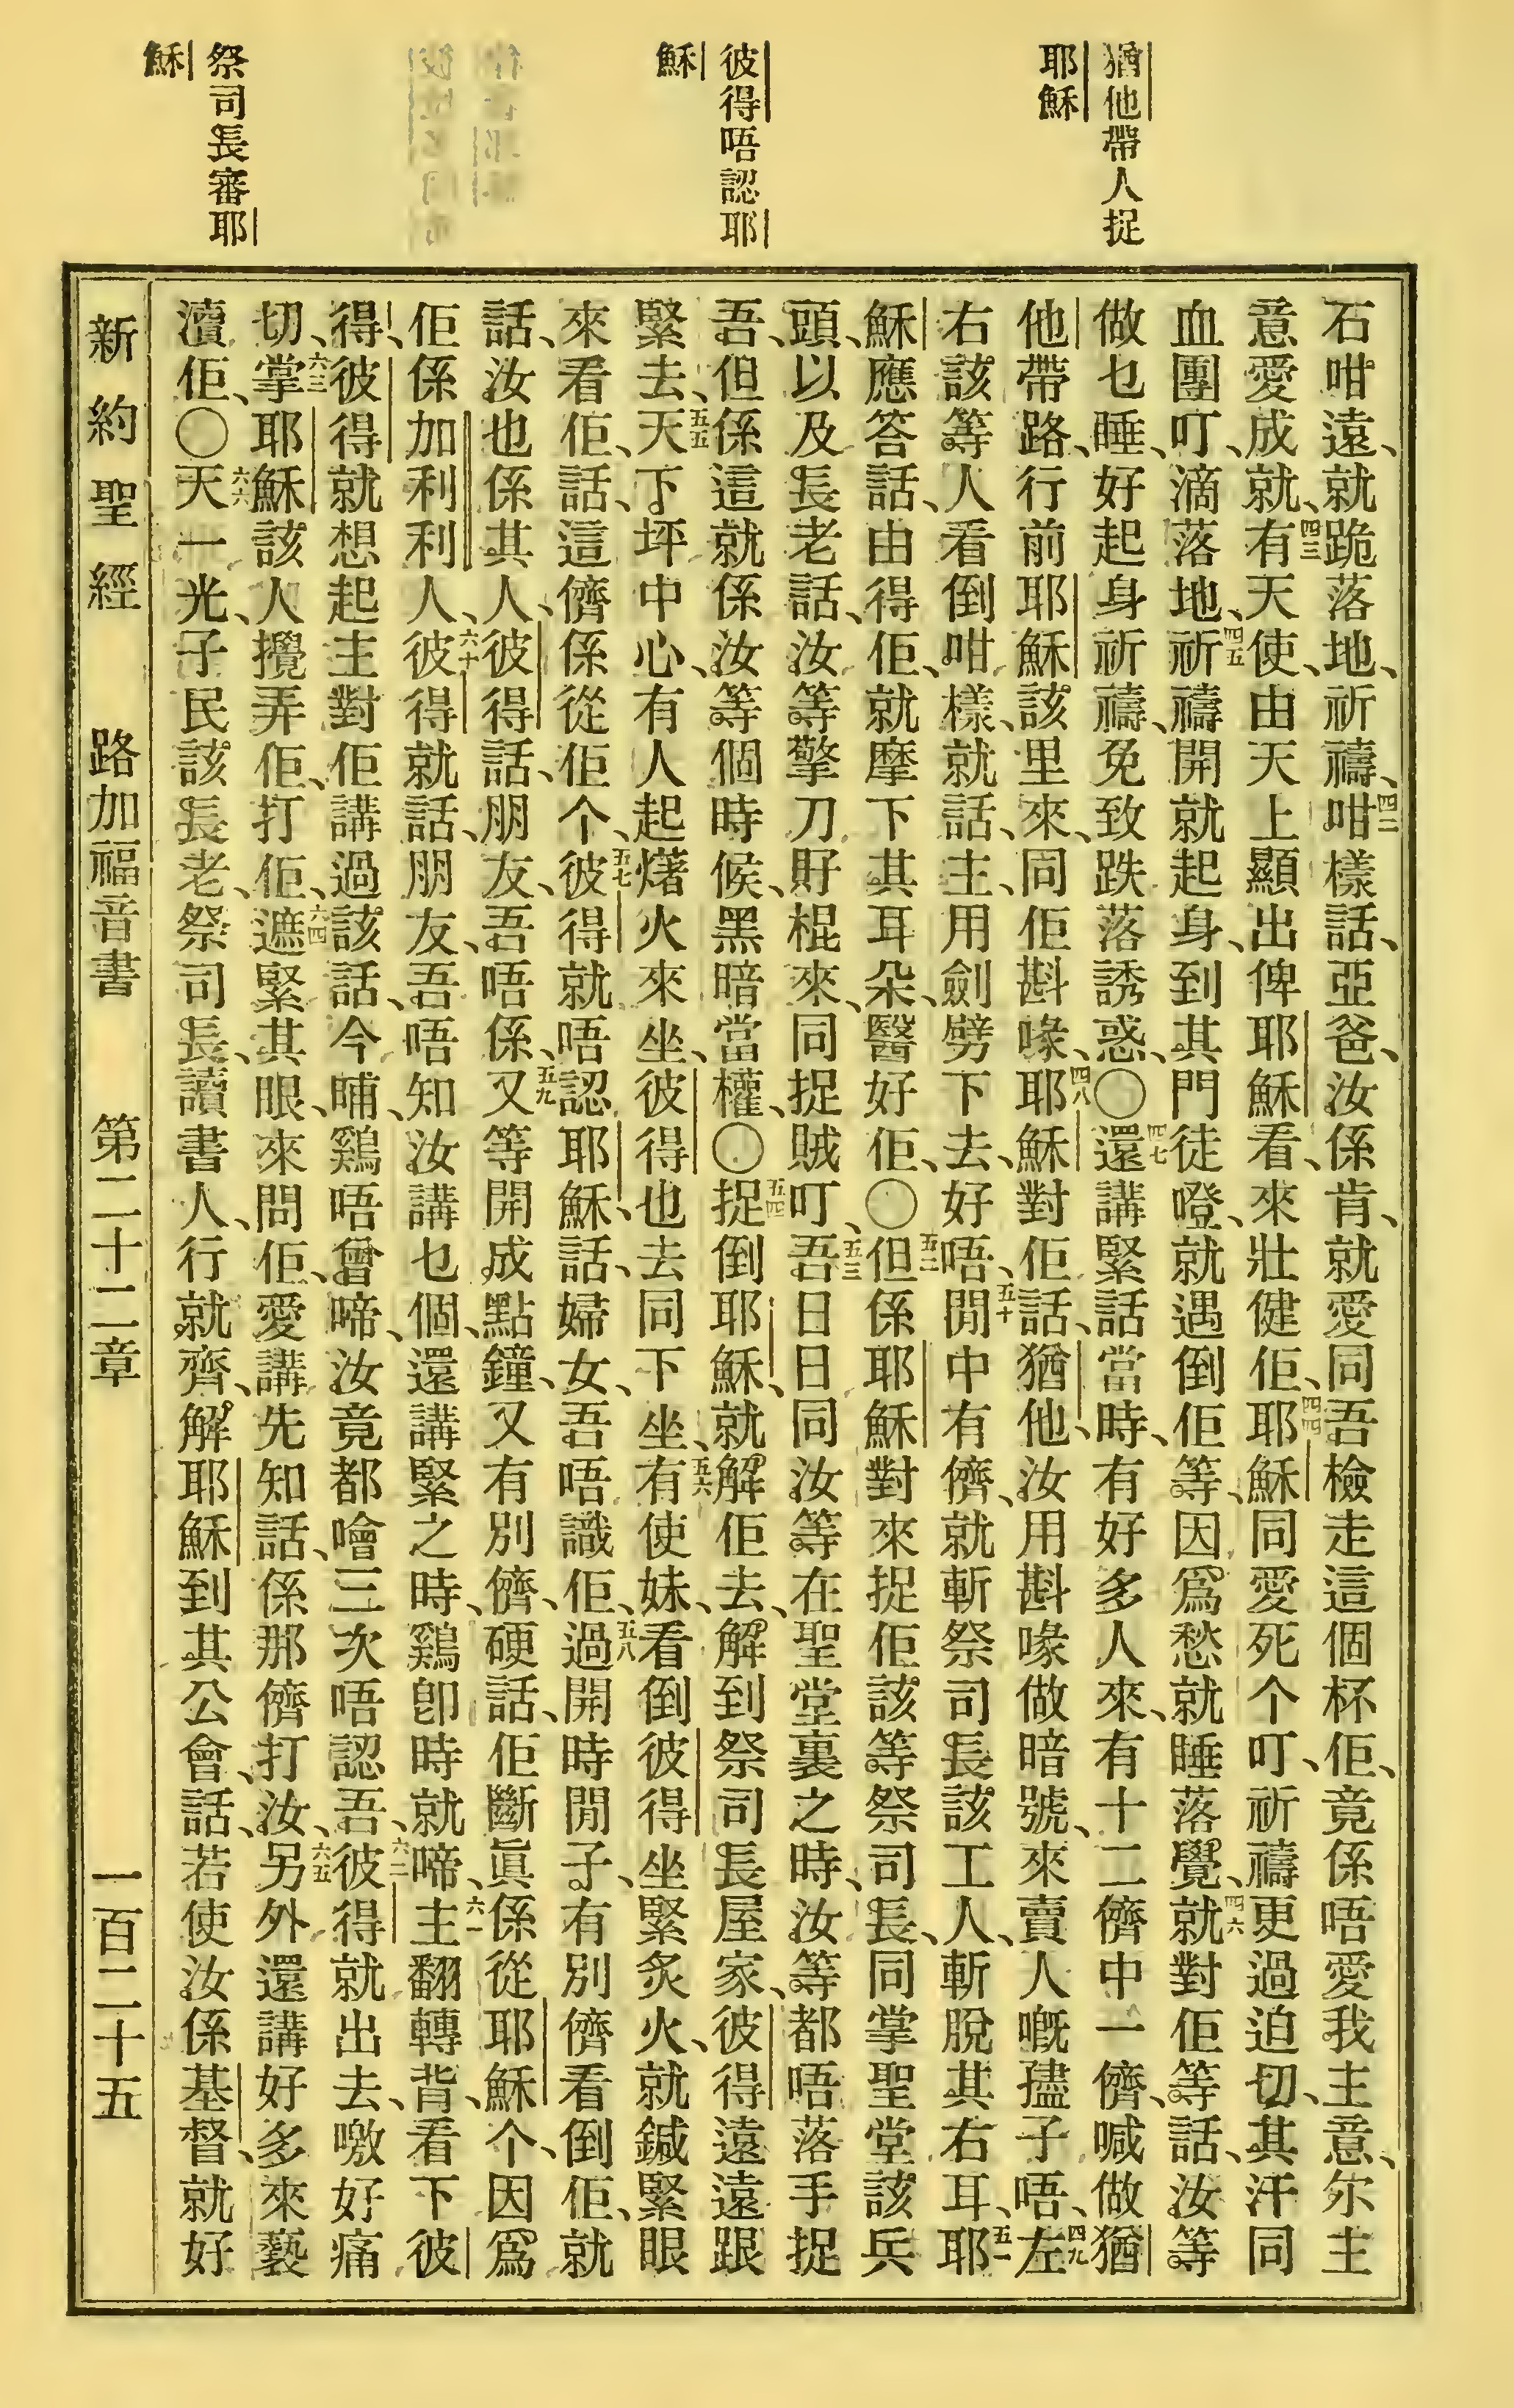 猶他帶人捉
耶穌
彼得唔認耶
穌
祭司長審耶
穌
石咁遠、就跪落地、祈禱、四二咁樣話、亞爸、汝係肯、就愛同吾檢走這個杯佢、竟係唔愛我主意、尔主
意愛成就、四三有天使、由天上顯出俾耶穌看、來壯健佢、四四耶穌同愛死个叮、祈禱更過迫切、其汗同
血團叮、滴落地、四五祈禱開就起身、到其門徒嶝、就遇倒佢等、因爲愁就睡落覺、四六就對佢等話、汝等
做乜睡、好起身祈禱、免致跌落誘惑、〇四七還講緊話當時、有好多人來、有十二儕中一儕、喊做猶
他帶路、行前耶穌該里來、同佢斟喙、四八耶穌對佢話、猶他、汝用斟喙做暗號、來賣人嘅孻子唔、四九左
右該等人看倒咁樣、就話、主、用劍劈下去、好唔、五十閒中有儕、就斬祭司長該工人、斬脫其右耳、五一耶
穌應答話、由得佢、就摩下其耳朶、醫好佢、〇五二但係耶穌對來捉佢該等祭司長、同掌聖堂該兵
頭、以及長老話、汝等擎刀財棍來、同捉賊叮、五三吾日日同汝等在聖堂裏之時、汝等都唔落手捉
吾、但係這就係汝等個時候、黑暗當權、〇五四捉倒耶穌、就解佢去、解到祭司長屋家、彼得遠遠跟
緊去、五五天下坪中心、有人起㸑火來坐、彼得也去同下坐、五六有使妹、看倒彼得坐緊炙火、就鍼緊眼
來看佢、話、這儕係從佢个、五七彼得就唔認耶穌、話、婦女、吾唔識佢、五八過開時閒子、有別儕看倒佢、就
話、汝也係其人、彼得話、朋友、吾唔係、五九又等開成點鐘、又有別儕、硬話、佢斷眞係從耶穌个、因爲
佢係加利利人、六十彼得就話、朋友、吾唔知汝講乜個、還講緊之時、鷄卽時就啼、六一主翻轉背、看下彼
得、彼得就想起主對佢講過該話、今晡、鷄唔曾啼、汝竟都噲三次唔認吾、六二彼得就出去、噭好痛
切、六三掌耶穌該人攪弄佢、打佢、六四遮緊其眼、來問佢、愛講先知話、係那儕打汝、六五另外還講好多來褻
瀆佢、〇六六天一光、子民該長老、祭司長、讀書人、行就齊、解耶穌到其公會、話、若使汝係基督、就好
新約聖經 路加福音書 第二十二章 一百二十五